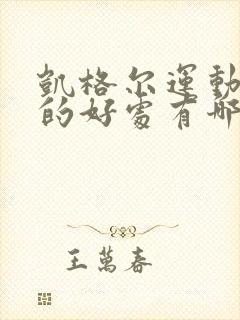 凱格尔運動
的好處有哪
王萬春